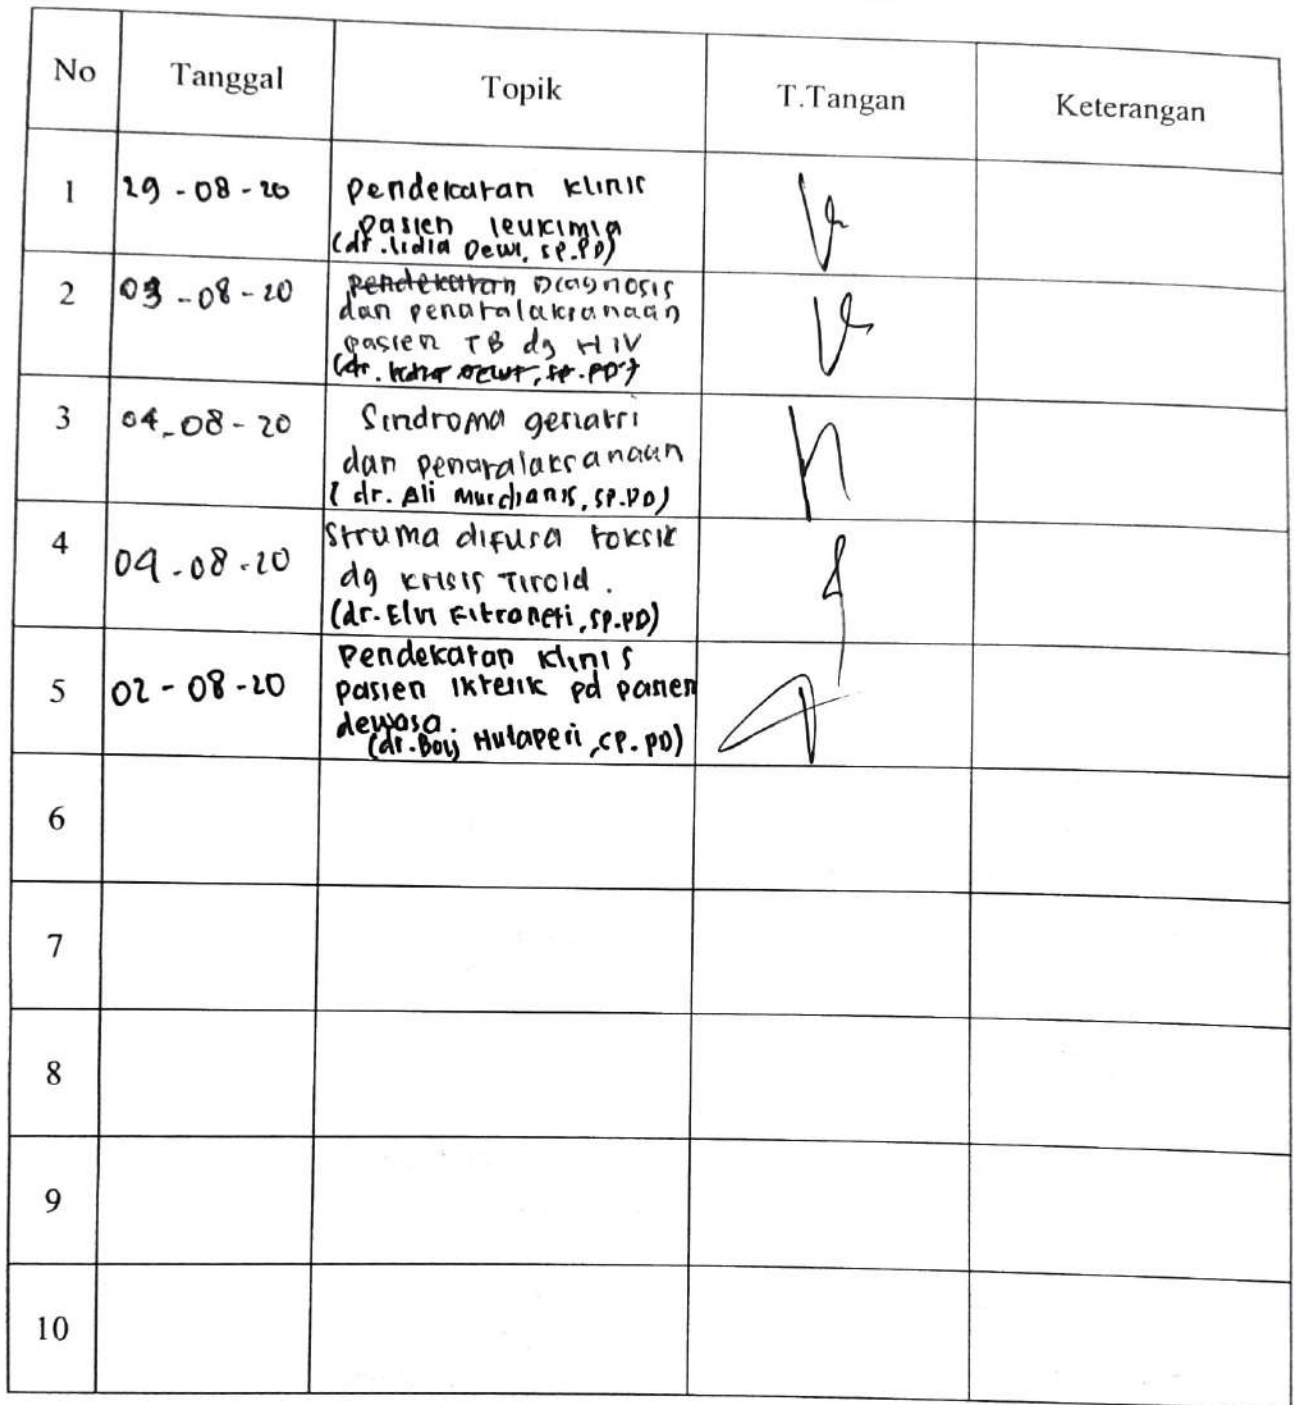 No Tanggal Topik T.Tangan Keterangan
1 29-08-20 Pendekatan klinis
pasien leukimia
(dr. Lidia Dewi, Sp.PD)
2 03-08-20 Pendekatan Diagnosis
dan penatalaksanaan
pasien TB dg HIV
(dr. Sp.PD)
3 04-08-20 Sindroma geriatri
dan penatalaksanaan
(dr. Ali Murdianis, Sp.PD)
4 04-08-20 Struma difusa toksik
dg krisis Tiroid.
(dr. Elvi Fitraneti, Sp.PD)
5 02-08-20 Pendekatan klinis
pasien ikterik pd pasien
dewasa.
(dr. Hutaperi, Sp.PD)
6
7
8
9
10